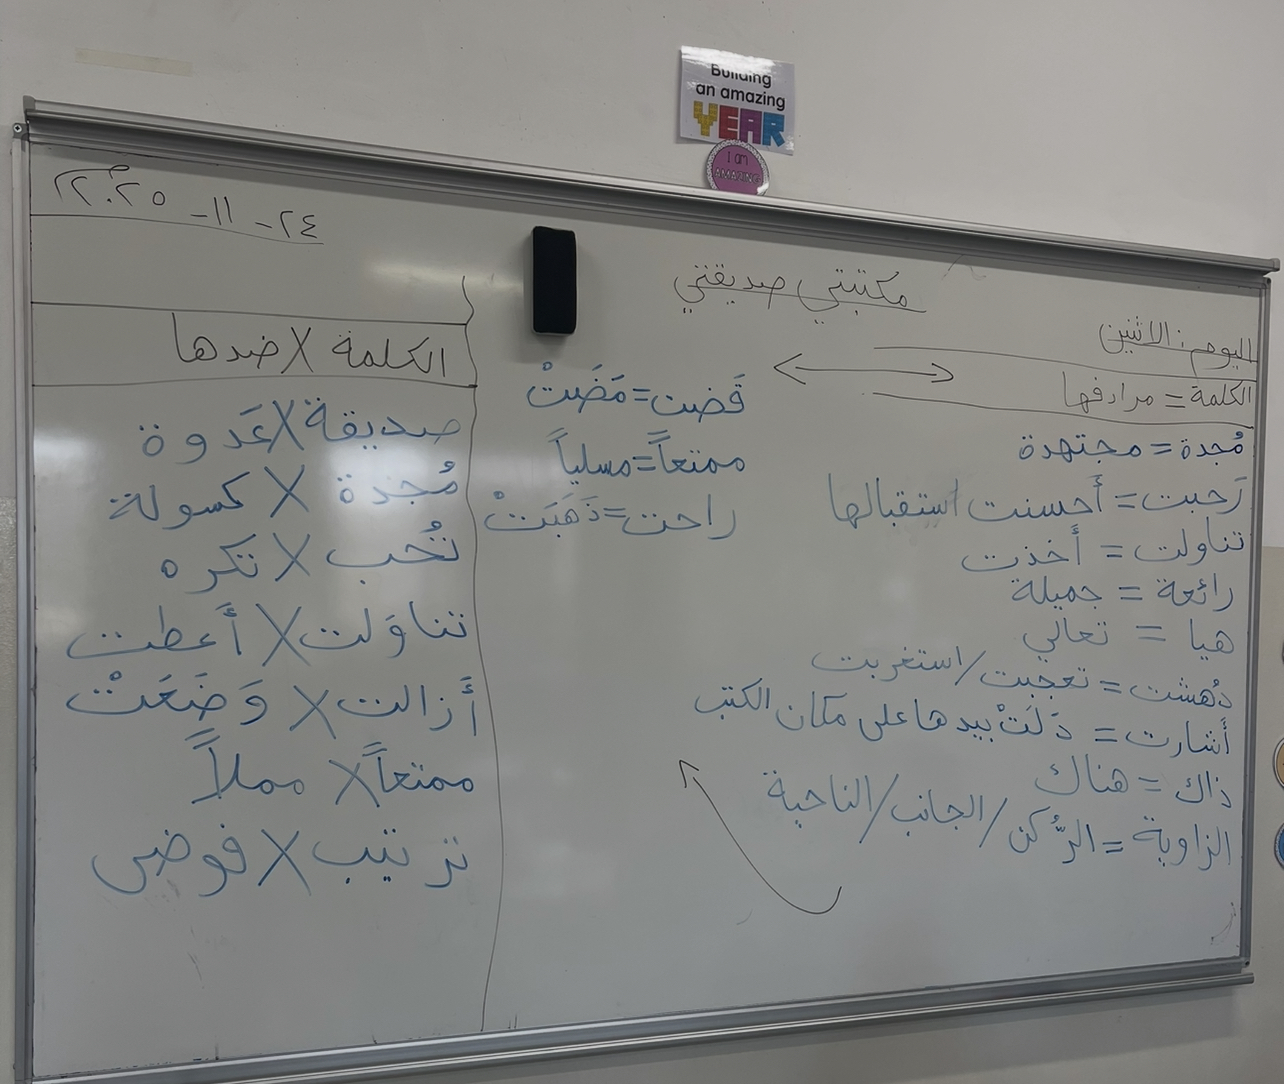 Building
an amazing
YEAR
I am
AMAZING
٢٤ - ١١ - ٢٠٢٥م
مكتبتي صديقتي
اليوم: الاثنين
الكلمة = مرادفها
مُجدة = مجتهدة
رَحبت = أحسنت استقبالها
تناولت = أخذت
رائعة = جميلة
هيا = تعالي
دُهشت = تعجبت/استغربت
أشارت = دَلَتْ بيدها على مكان الكتب
ذاك = هناك
الزاوية = الرُّكن/الجانب/الناحية
قَضت = مَضَتْ
ممتعاً = مسلياً
راحت = ذَهَبَتْ
الكلمة X ضدها
صديقة X عَدوة
مُجدة X كسولة
تُحب X تكره
تناوَلت X أَعطت
أَزالت X وَضَعَتْ
ممتعاً X مملاً
ترتيب X فوضى